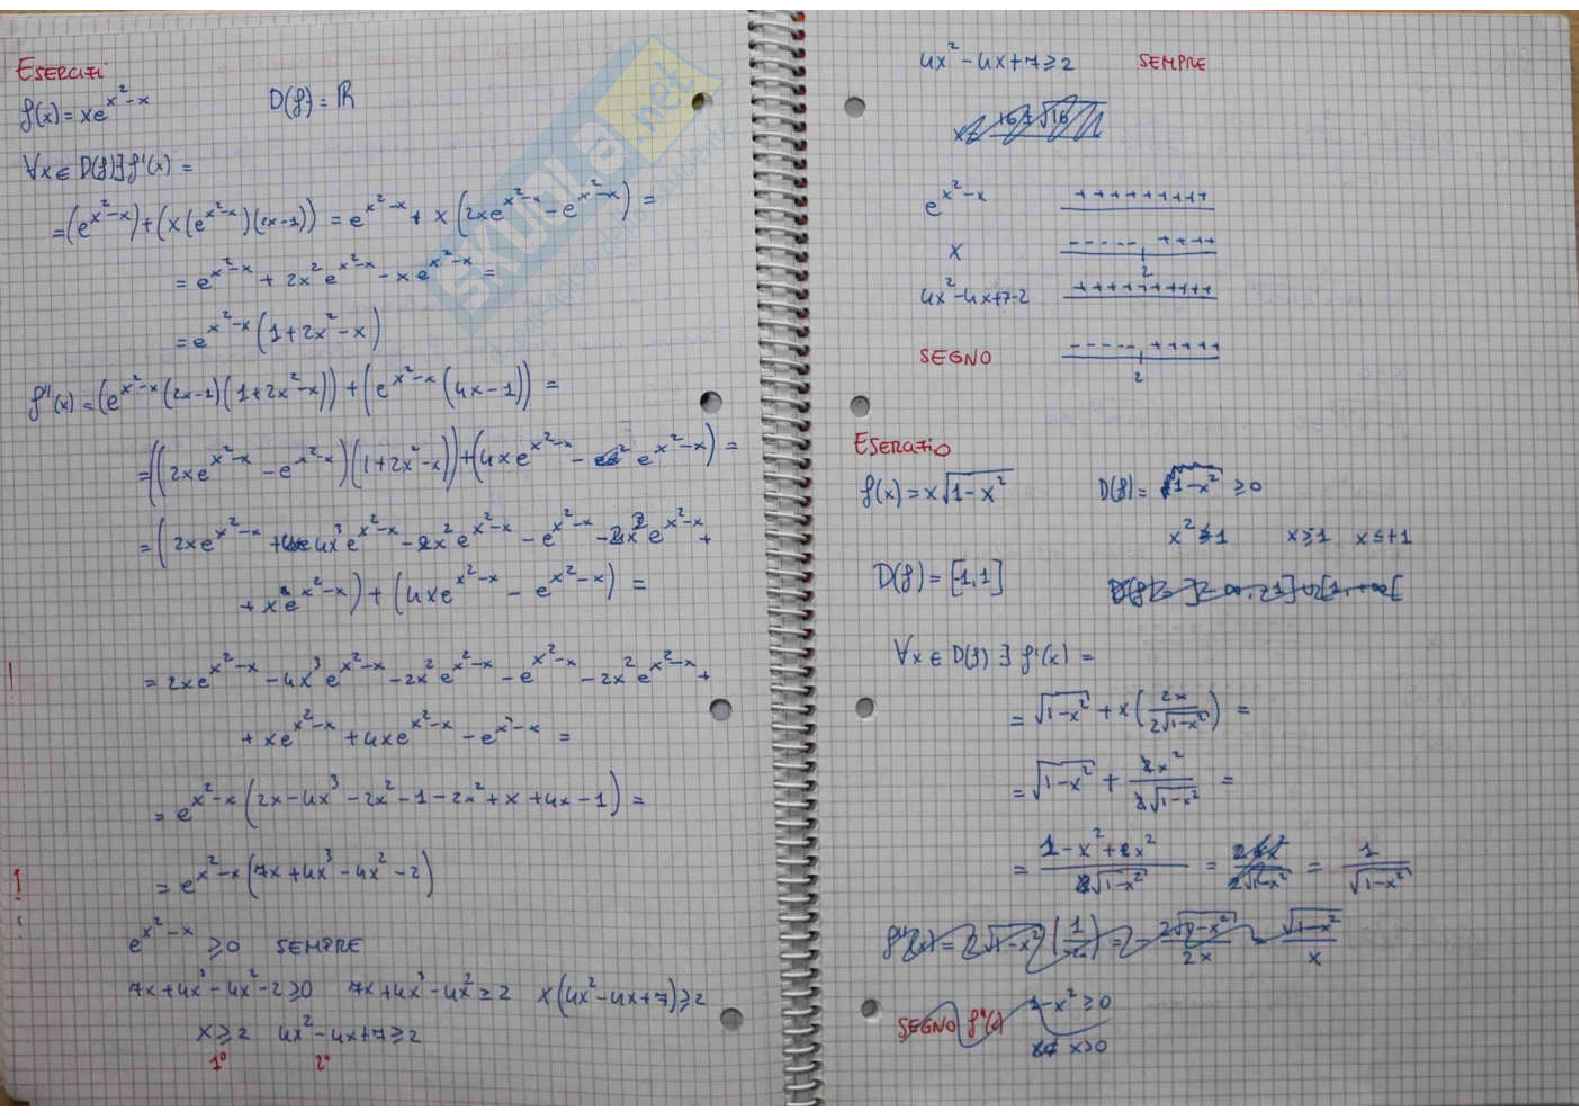 ESERCIZI
f(x) = xe^{x²-x}    D(f) = ℝ
∀x ∈ D(f) ∃ f'(x) =
= (e^{x²-x}) + (x(e^{x²-x})(2x-1)) = e^{x²-x} + x(2xe^{x²-x} - e^{x²-x}) =
= e^{x²-x} + 2x² e^{x²-x} - xe^{x²-x} =
= e^{x²-x}(1+2x²-x)
f''(x) = (e^{x²-x}(2x-1)(1+2x²-x)) + (e^{x²-x}(4x-1)) =
= ((2xe^{x²-x} - e^{x²-x})(1+2x²-x)) + (4xe^{x²-x} - e^{x²-x}) =
= (2xe^{x²-x} + 4x³e^{x²-x} - 2x²e^{x²-x} - e^{x²-x} - 2x²e^{x²-x} +
+ xe^{x²-x}) + (4xe^{x²-x} - e^{x²-x}) =
! = 2xe^{x²-x} - 4x³e^{x²-x} - 2x²e^{x²-x} - e^{x²-x} - 2x²e^{x²-x} +
+ xe^{x²-x} + 4xe^{x²-x} - e^{x²-x} =
= e^{x²-x}(2x - 4x³ - 2x² - 1 - 2x² + x + 4x - 1) =
! = e^{x²-x}(7x + 4x³ - 4x² - 2)
e^{x²-x} ≥ 0  SEMPRE
7x + 4x³ - 4x² - 2 ≥ 0   7x + 4x³ - 4x² ≥ 2   x(4x² - 4x + 7) ≥ 2
x ≥ 2   4x² - 4x + 7 ≥ 2
1°   2°
4x² - 4x + 7 ≥ 2   SEMPRE
e^{x²-x}  +++++++++
x  ----- ++++
2
4x²-4x+7-2  ++++++++++
SEGNO  ----- +++++
2
ESERCIZIO
f(x) = x√(1-x²)   D(f) = √(1-x²) ≥ 0
x² ≤ 1   x ≥ 1   x ≤ +1
D(f) = [-1,1]
∀x ∈ D(f) ∃ f'(x) =
= √(1-x²) + x(2x/(2√(1-x²))) =
= √(1-x²) + 2x²/(2√(1-x²)) =
= (1-x²+x²)/√(1-x²) = = 1/√(1-x²)
SEGNO f''(x)   1-x² ≥ 0
x > 0
SKUOLA.net